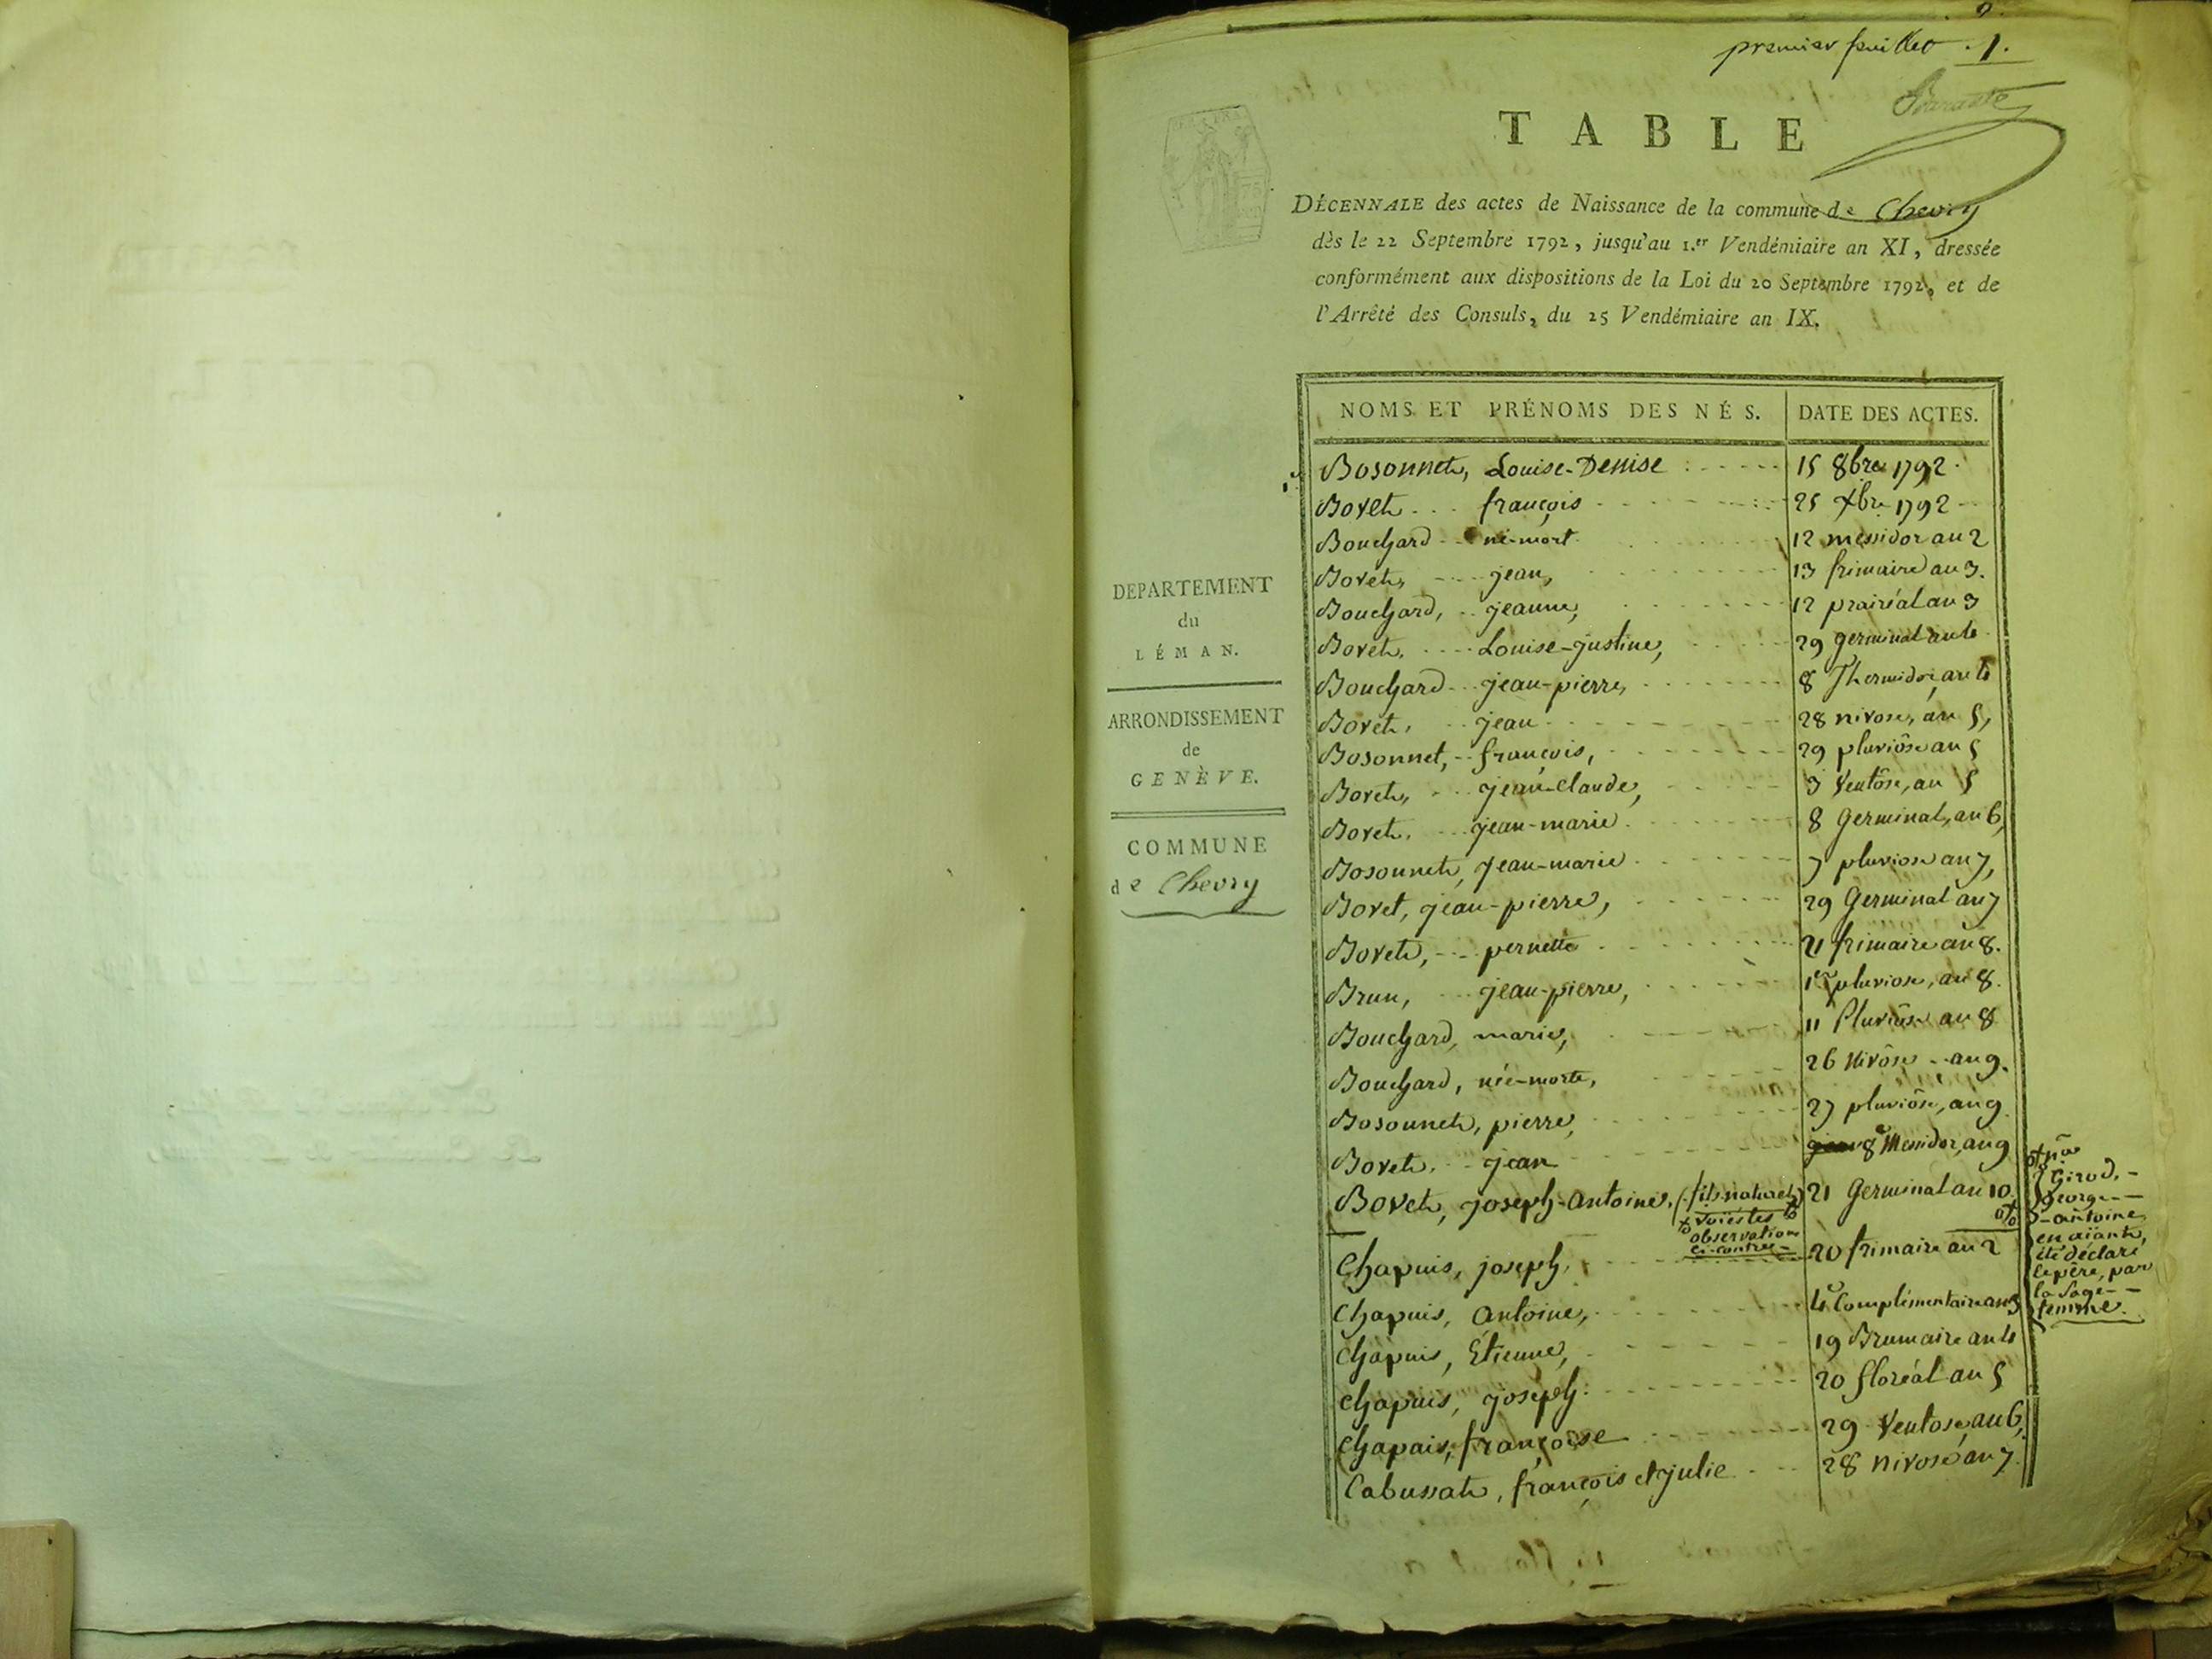 premier feuillet . 1.
TABLE
DÉCENNALE des actes de Naissance de la commune de Chevry
dès le 22 Septembre 1792, jusqu'au 1.er Vendémiaire an XI, dressée
conformément aux dispositions de la Loi du 20 Septembre 1792, et de
l'Arrêté des Consuls, du 25 Vendémiaire an IX.
DEPARTEMENT
du
LÉMAN.
ARRONDISSEMENT
de
GENÈVE.
COMMUNE
de Chevry
NOMS ET PRÉNOMS DES NÉS. DATE DES ACTES.
Bosonnet, Louise-Denise 15 8bre 1792
Bovet françois 25 xbre 1792
Bouchard né-mort 12 messidor au 2
Bovet, jean, 13 frimaire au 3.
Bouchard, jeanne, 12 prairéal au 3
Bovet, Louise-justine, 29 germinal au 4
Bouchard jean-pierre, 8 Thermidor, an 4
Bovet, jean 28 nivose, an 5,
Bosonnet, françois, 29 pluviôse an 5
Bovet, jean-Claude, 3 Ventôse, an 5
Bovet, jean-marie 8 Germinal, an 6,
Bosonnet, jean-marie 7 pluviose an 7,
Bovet, jean-pierre, 29 Germinal an 7
Bovet, pernette 21 frimaire an 8.
Brun, jean-pierre, 1er pluviose, an 8.
Bouchard, marie, 11 Pluviôse an 8
Bouchard, née-morte, 26 Nivôse an 9.
Bosonnet, pierre, 27 pluviôse, an 9.
Bovet, jean 8e Messidor, an 9
Bovet, joseph-Antoine, (fils naturel) 21 Germinal an 10.
voïés les
observation
ci-contre
Girod,
george-
-antoine
en aïant,
été déclaré
le père, par
la Sage-
femme.
Chapuis, joseph, 20 frimaire au 2
Chapuis, Antoine, 4e Complémentaire an 3
Chapuis, Étienne, 19 Brumaire an 4
Chapuis, joseph 20 floréal an 5
Chapuis, françoise 29 Ventose, an 6,
Cabussat, françois et julie 28 nivose an 7.